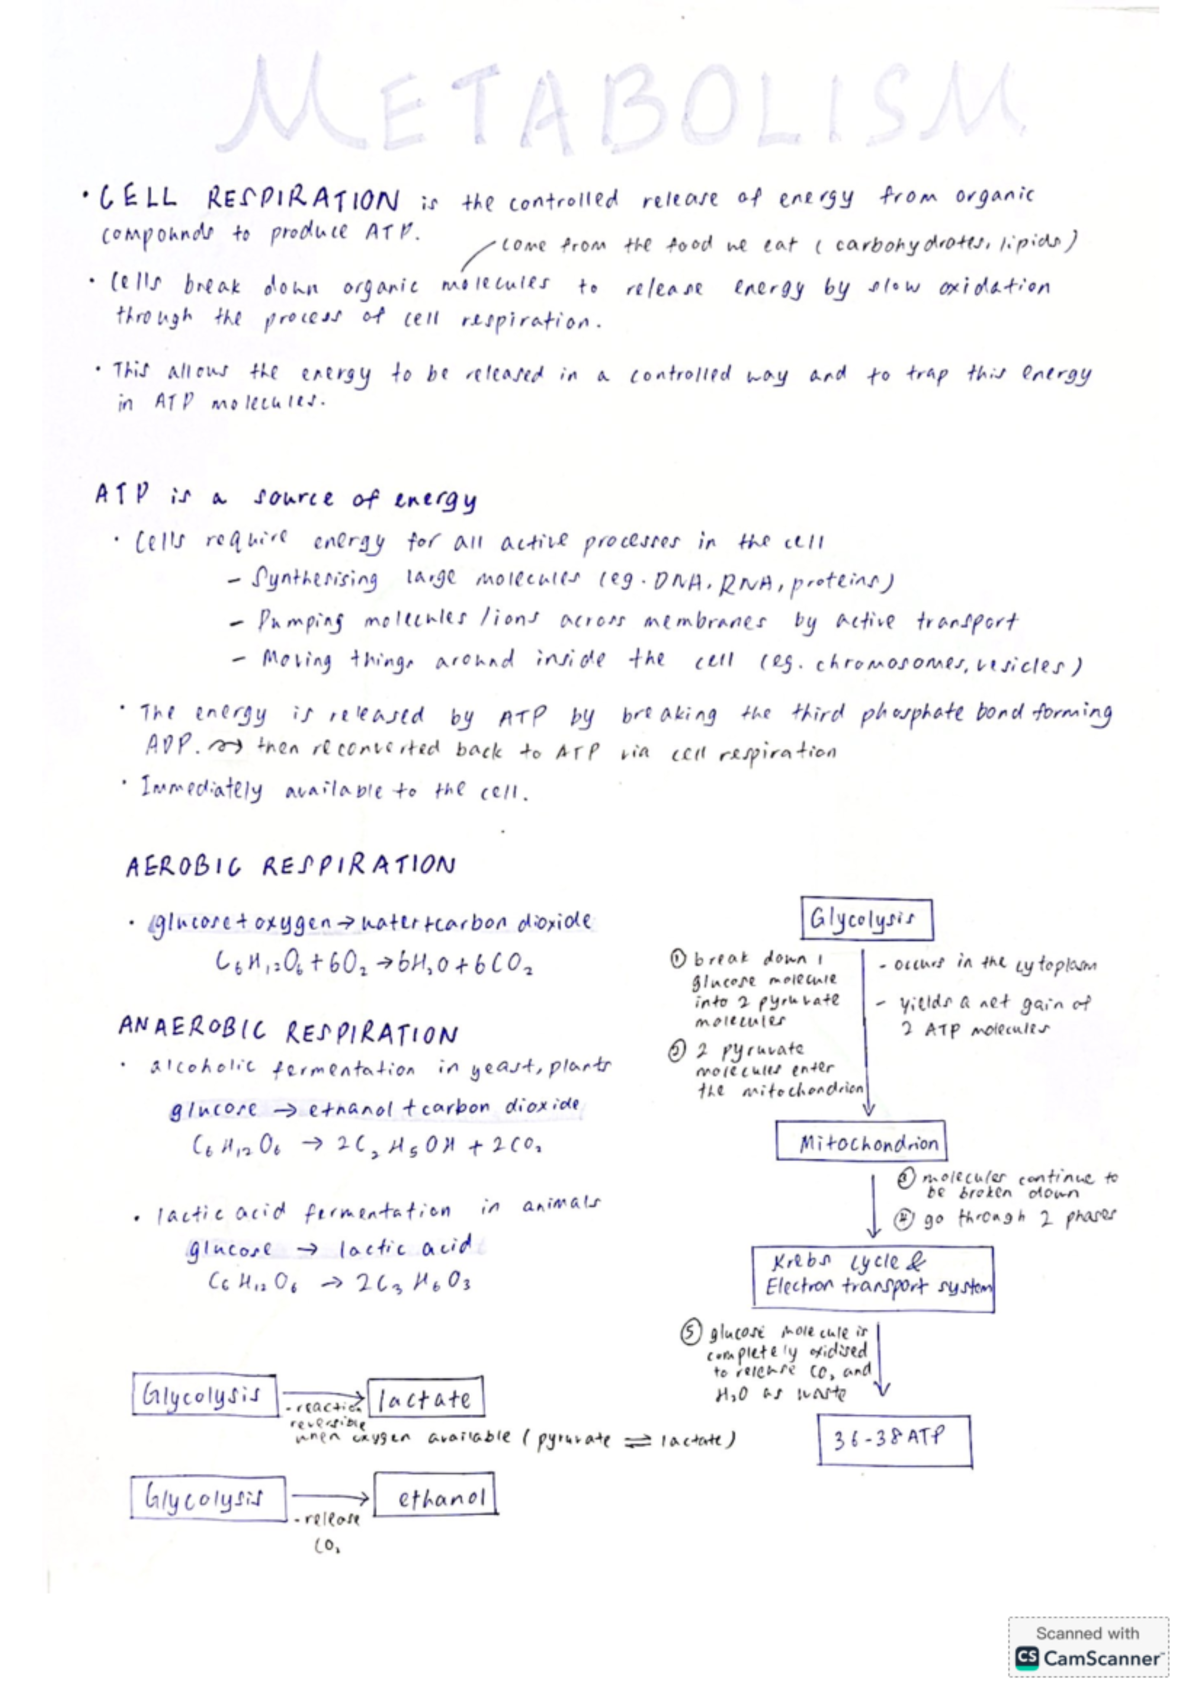 METABOLISM
• CELL RESPIRATION is the controlled release of energy from organic
compounds to produce ATP.
come from the food we eat (carbohydrates, lipids)
• Cells break down organic molecules to release energy by slow oxidation
through the process of cell respiration.
• This allows the energy to be released in a controlled way and to trap this energy
in ATP molecules.
ATP is a source of energy
• Cells require energy for all active processes in the cell
– Synthesising large molecules (eg. DNA, RNA, proteins)
– Pumping molecules/ions across membranes by active transport
– Moving things around inside the cell (eg. chromosomes, vesicles)
• The energy is released by ATP by breaking the third phosphate bond forming
ADP. ⇝ then reconverted back to ATP via cell respiration
• Immediately available to the cell.
AEROBIC RESPIRATION
• glucose + oxygen → water + carbon dioxide
C₆H₁₂O₆ + 6O₂ → 6H₂O + 6CO₂
ANAEROBIC RESPIRATION
• alcoholic fermentation in yeast, plants
glucose → ethanol + carbon dioxide
C₆H₁₂O₆ → 2C₂H₅OH + 2CO₂
• lactic acid fermentation in animals
glucose → lactic acid
C₆H₁₂O₆ → 2C₃H₆O₃
Glycolysis → lactate
- reaction
reversible
when oxygen available (pyruvate ⇌ lactate)
Glycolysis → ethanol
- release
CO₂
Glycolysis
① break down 1
glucose molecule
into 2 pyruvate
molecules
② 2 pyruvate
molecules enter
the mitochondrion
- occurs in the cytoplasm
- yields a net gain of
2 ATP molecules
Mitochondrion
③ molecules continue to
be broken down
④ go through 2 phases
Krebs cycle &
Electron transport system
⑤ glucose molecule is
completely oxidised
to release CO₂ and
H₂O as waste
36-38 ATP
Scanned with
CS CamScanner